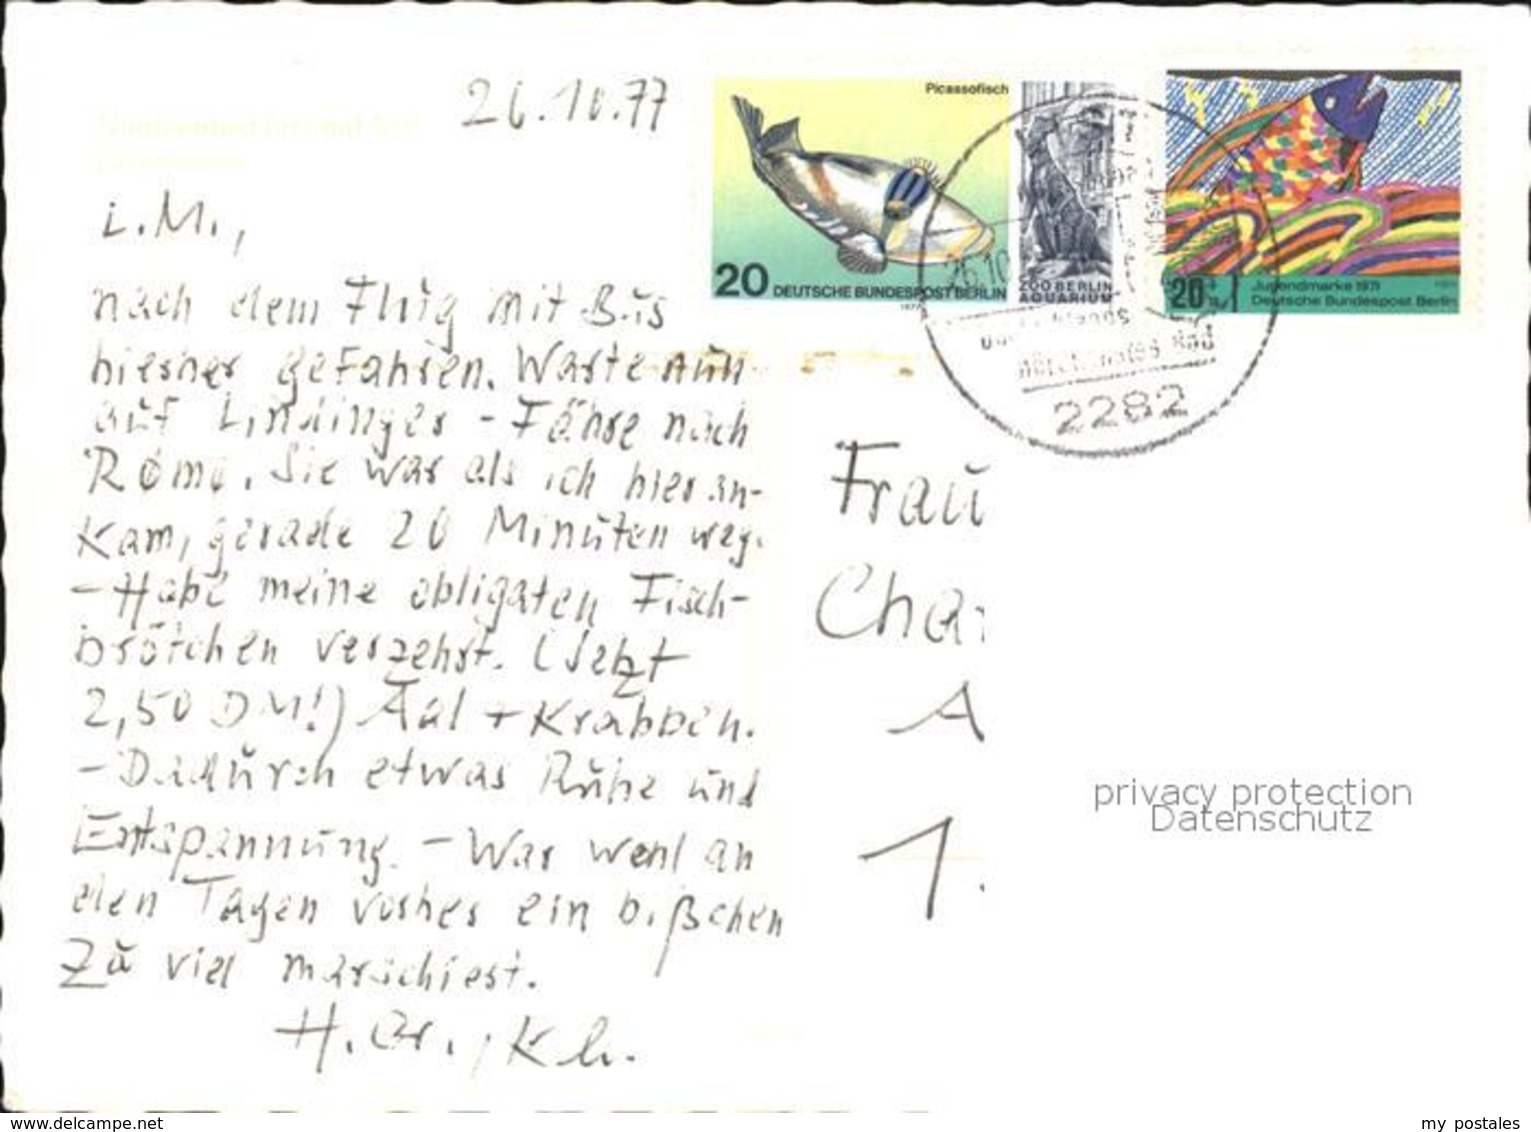 26.10.77
Picassofisch
20 DEUTSCHE BUNDESPOST BERLIN
1977
ZOO BERLIN
AQUARIUM
20
Jugendmarke 1971
Deutsche Bundespost Berlin
26.10
2282
L.M.,
nach dem Flug mit Bus
hierher gefahren. Warte nun
auf Lindinger - Fähre nach
Rømø. Sie war als ich hier an-
kam, gerade 20 Minuten weg.
- Habe meine obligaten Fisch-
brötchen verzehrt. (Jetzt
2,50 DM!) Aal + Krabben.
- Dadurch etwas Ruhe und
Entspannung. - War wohl an
den Tagen vorher ein bißchen
zu viel marschiert.
H. Gr., Kh.
Frau
Cha
A
1.
privacy protection
Datenschutz
www.delcampe.net
my postales